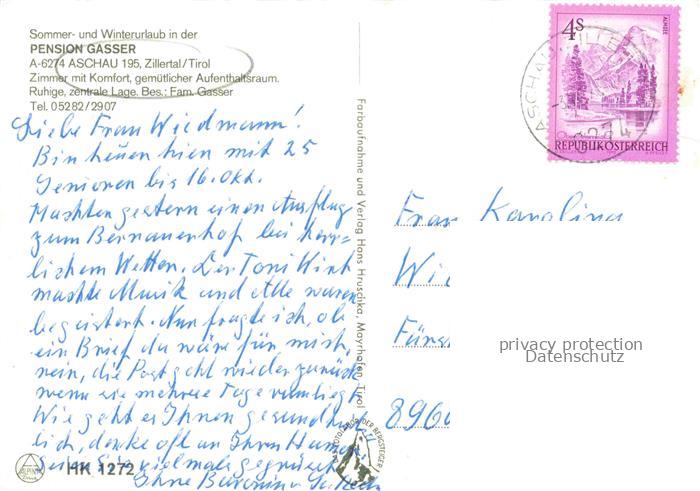 Sommer- und Winterurlaub in der
PENSION GASSER
A-6274 ASCHAU 195, Zillertal/Tirol
Zimmer mit Komfort, gemütlicher Aufenthaltsraum.
Ruhige, zentrale Lage. Bes.: Fam. Gasser
Tel. 05282/2907
Liebe Frau Wiedmann!
Bin heuer hier mit 25
Senioren bis 16. Okt.
Machten gestern einen Ausflug
zum Bernauerhof bei herr=
lichem Wetter. Der Toni Wirt
machte Musik und alle waren
begeistert. Nun fragte ich, ob
ein Brief da wäre für mich,
nein, die Post geht wieder zurück
wenn sie mehrere Tage
Wie geht es Ihnen gesundheit
lich, denke oft an Ihren
Seien Sie vielmals gegrüßt
Ihre
HK 1272
ALPINA
Farbaufnahme und Verlag Hans Hruschka, Mayrhofen, Tirol
DER BERGSTEIGER
4s
ALMSEE
REPUBLIK ÖSTERREICH
ASCHAU ZILLERTAL
6274
Frau Karolina
Wi
Fürs
8960
privacy protection
Datenschutz